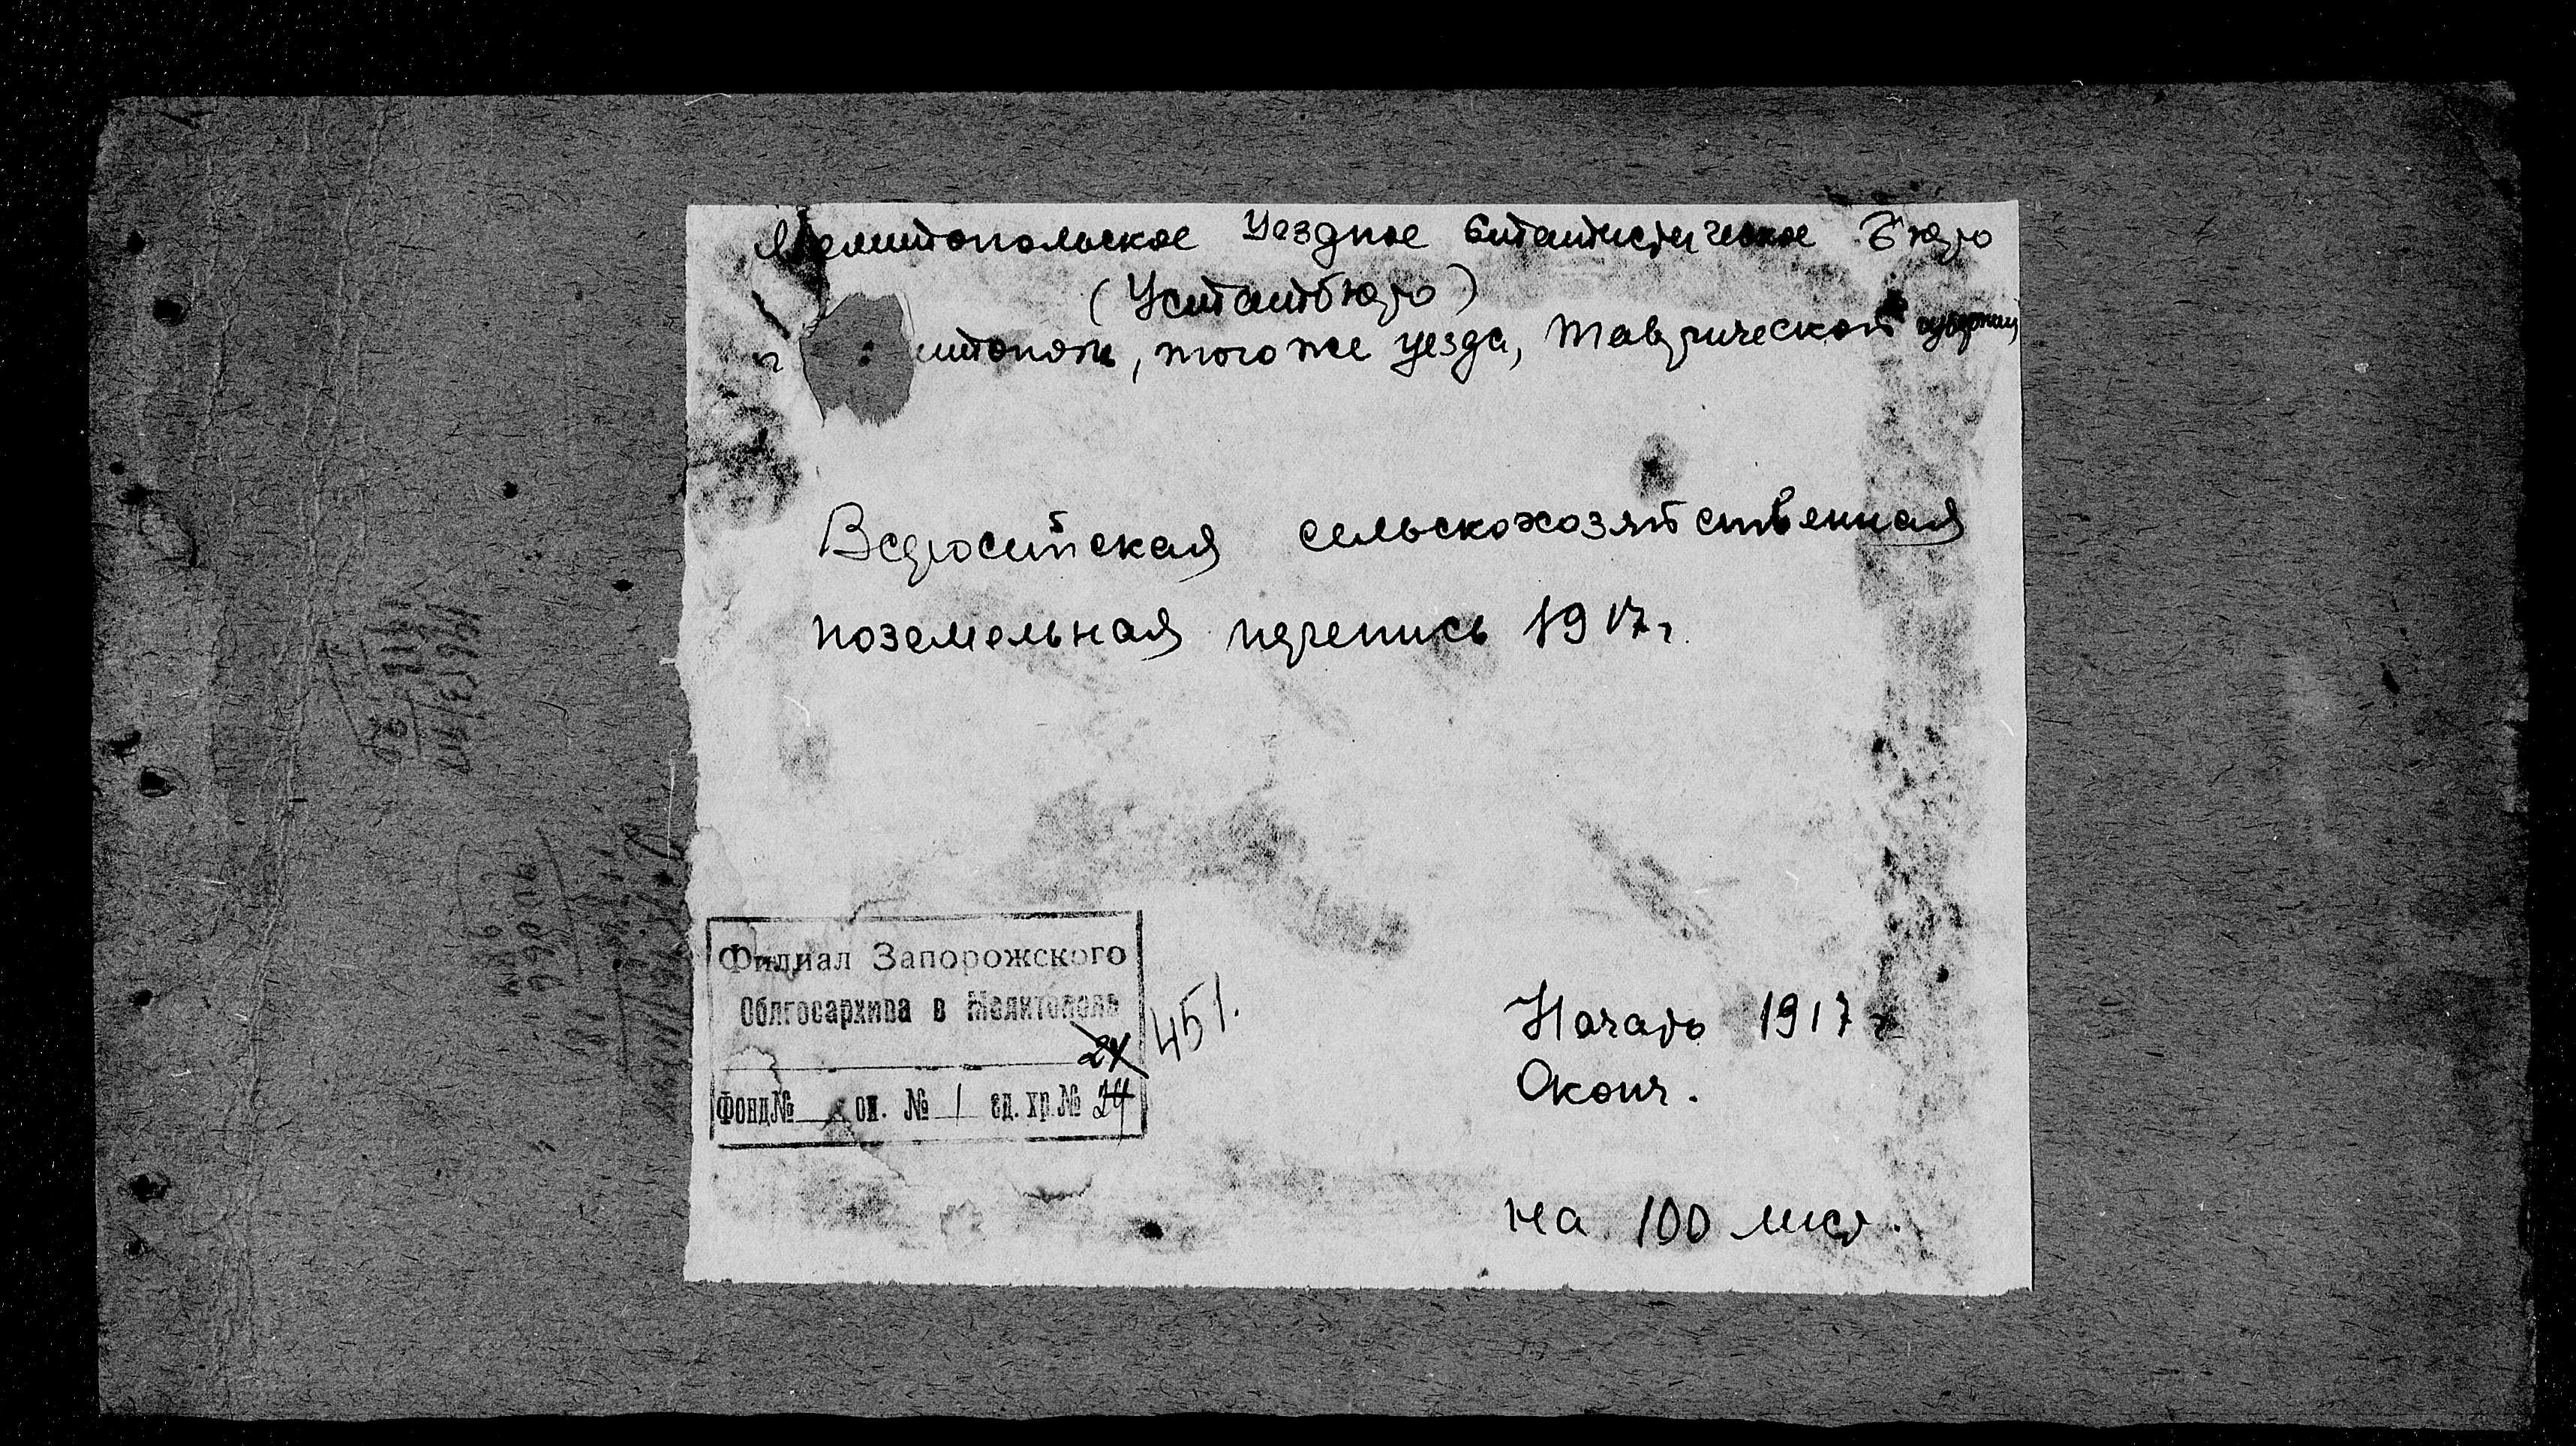 Мелитопольское Уездное Статистическое Бюро
(Устатбюро)
г итополь, того же уезда, Таврической губернии
Всеросийская сельскохозяйственная
поземельная перепись 1917 г.
Филиал Запорожского
Облгосархива в Мелитополе
24 451.
Фонд № оп. № 1 ед. хр. № 24
Начато 1917 г
Оконч.
на 100 лист.